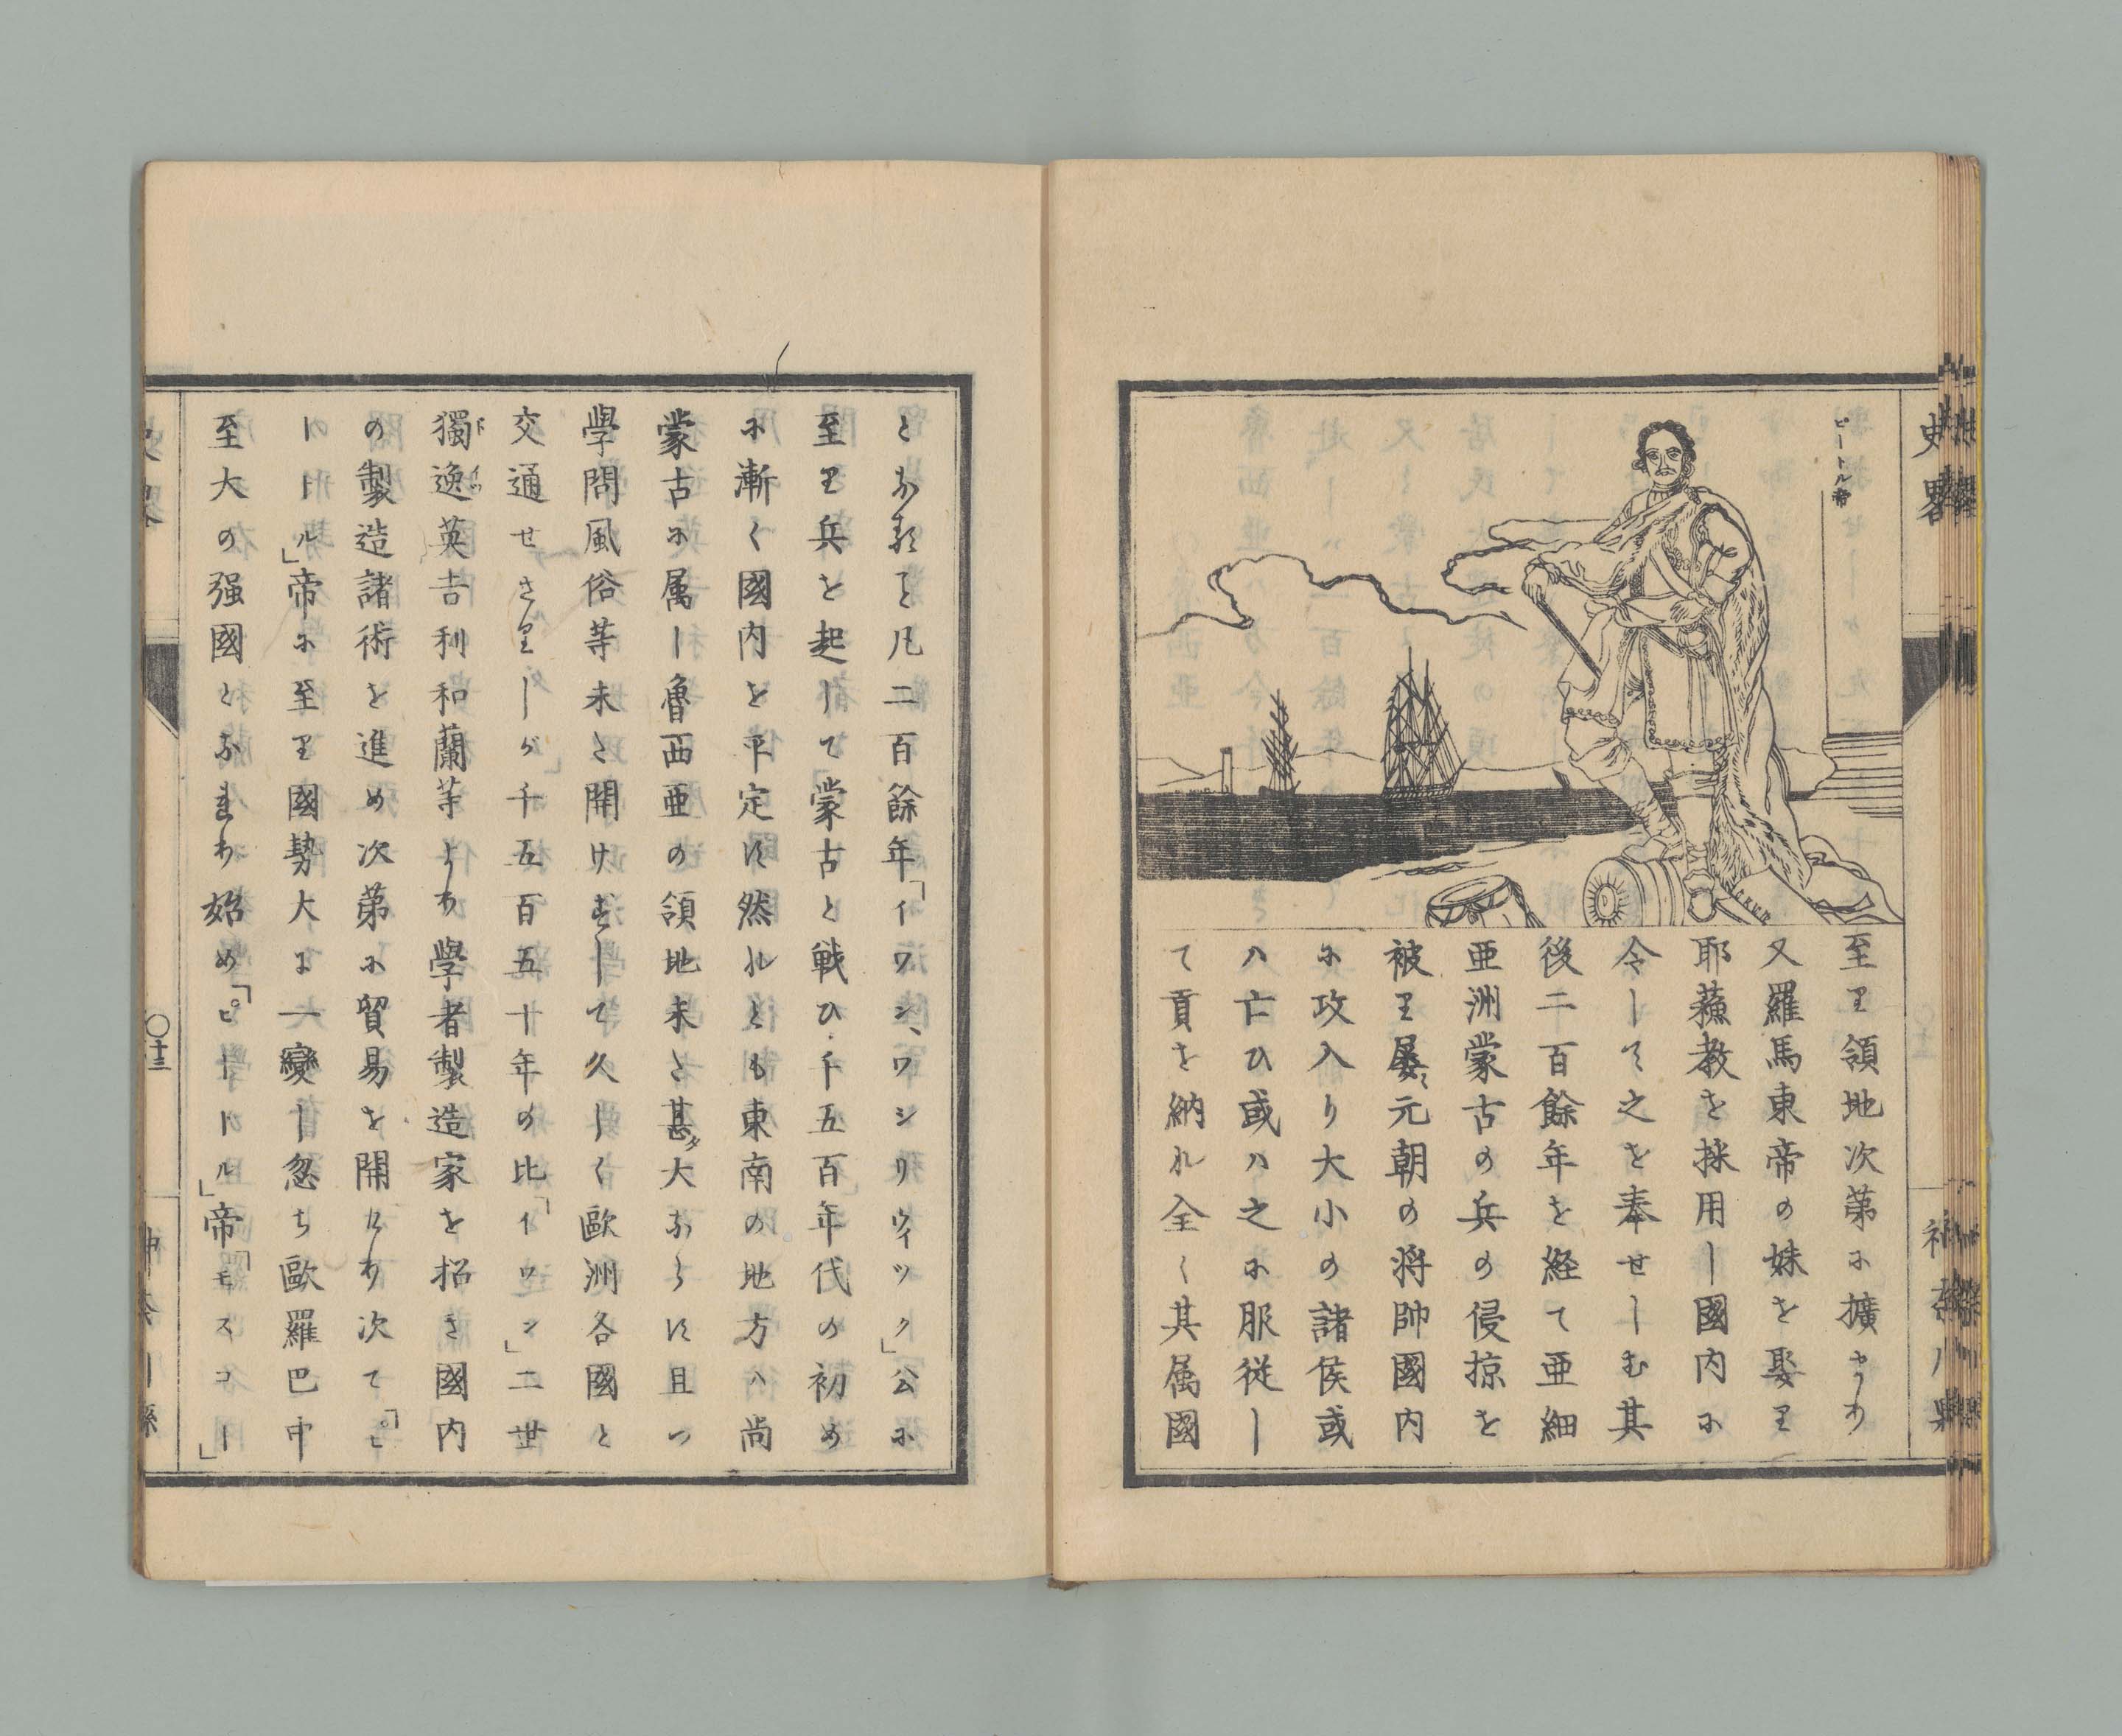 ピートル帝
至り領地次第に擴まり
又羅馬東帝の妹を娶り
耶蘓教を採用し國内に
令して之を奉せしむ其
後二百餘年を経て亜細
亜洲蒙古の兵の侵掠を
被り屡〻元朝の将帥國内
に攻入り大小の諸侯或
ハ亡ひ或ハ之に服従し
て貢を納れ全く其属國
となること凡二百餘年「イワン、ワシリウィツク」公に
至り兵を起して蒙古と戦ひ千五百年代の初め
に漸く國内を平定す然れとも東南の地方ハ尚
蒙古に属し魯西亜の領地未た甚タ大ならす且つ
學問風俗等未た開けずして久しく歐洲各國と
交通せさりしが千五百五十年の比「イワン」二世
獨逸英吉利和蘭等より學者製造家を招き國内
の製造諸術を進め次第に貿易を開けり次て「ピ
ートル」帝に至り國勢大に一變し忽ち歐羅巴中
至大の强國となれり始め「ピートル」帝「モスコー」
史畧
〇十三
神奈川縣